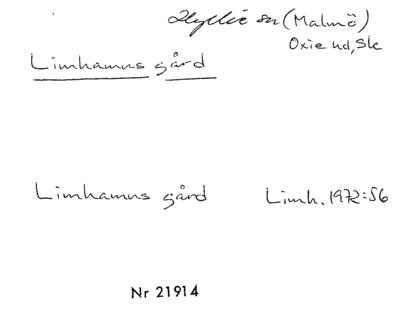 Hyllie sn (Malmö)
Oxie hd, Sk
Limhamns gård
Limhamns gård Limh. 1972:56
Nr 21914